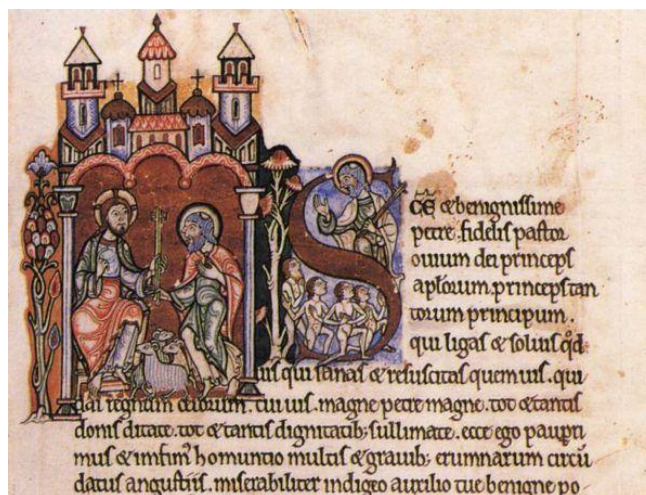 S
c̄e & benignissime
petre. fidelis pastor
ouium dei princeps
apl̄orum. princeps tan
torum principum.
qui ligas & soluis qd̄
uis qui sanas & resuscitas quem uis. qui
das regnum celorum. cui uis. magne petre magne. tot & tantis
donis ditate. tot & tantis dignitatib; sullimate. ecce ego paupri
mus & infim' homuntio multis & grauib; erumnarum circū
datus angustiis. miserabiliter indigeo auxilio tue benigne po-